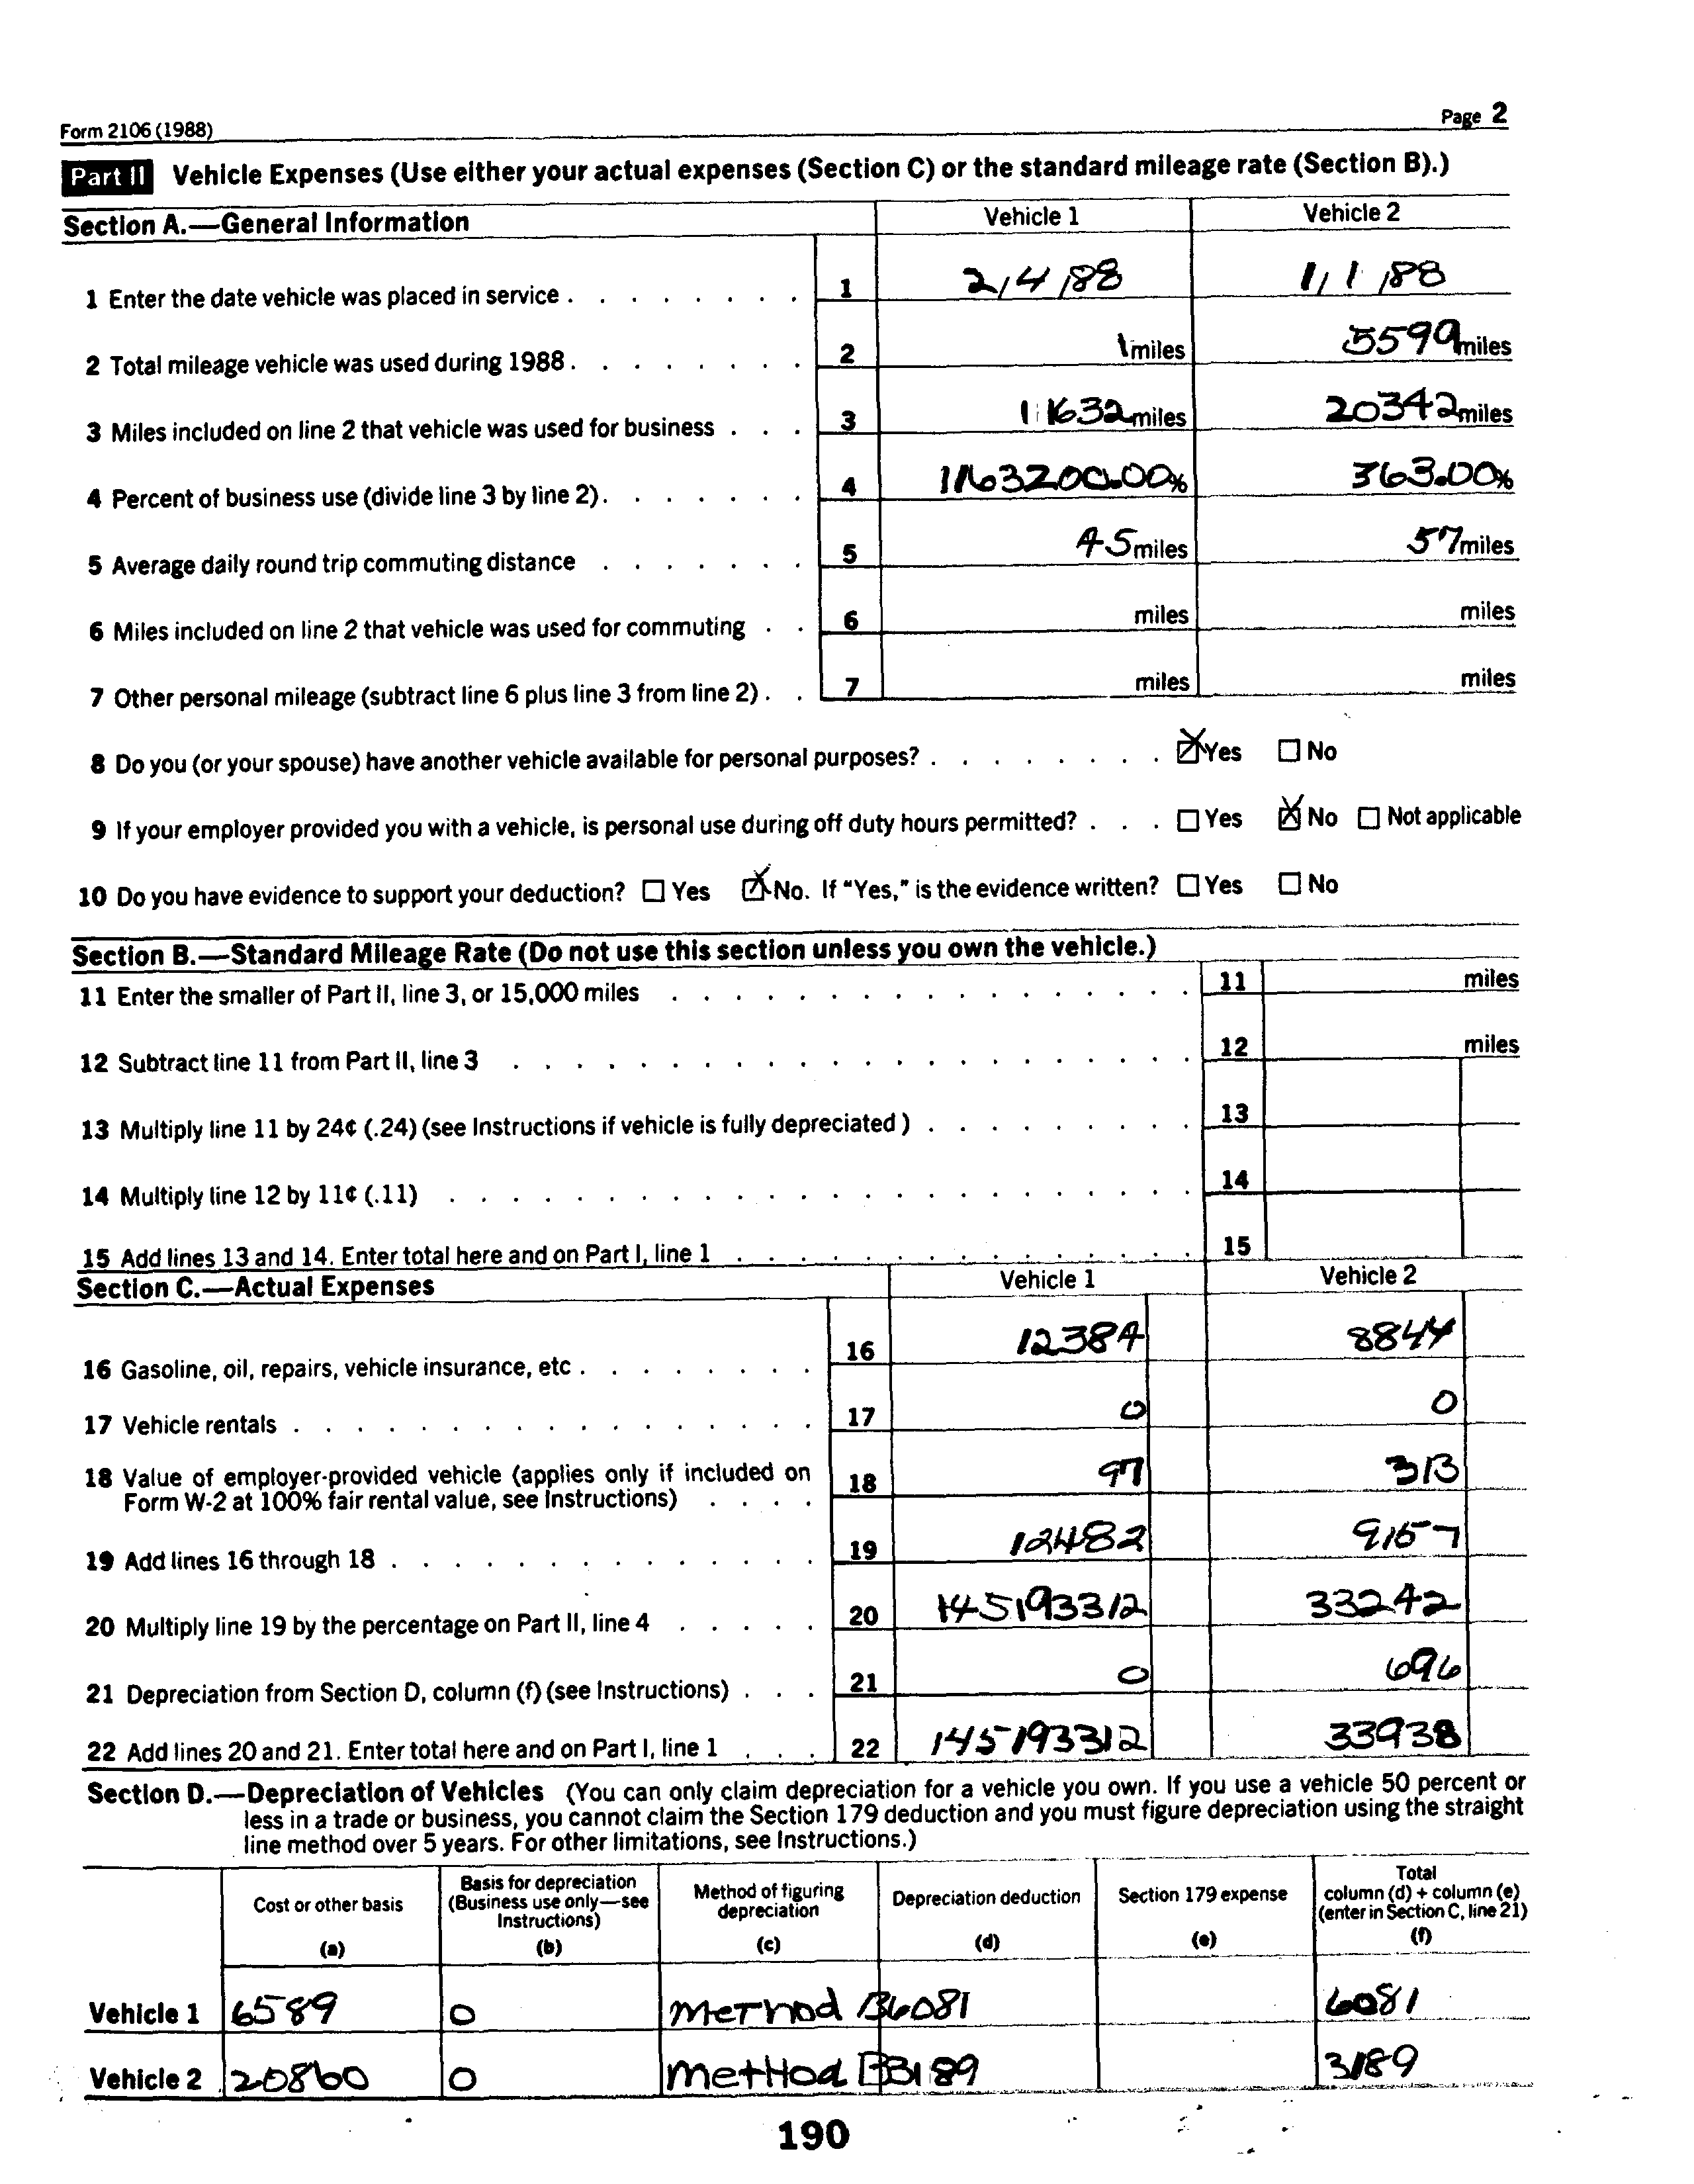 Form 2106 (1988) Page 2
Part II Vehicle Expenses (Use either your actual expenses (Section C) or the standard mileage rate (Section B).)
Section A.—General Information Vehicle 1 Vehicle 2
1 Enter the date vehicle was placed in service . . . . . . . . 1 2/4/88 1/1/88
2 Total mileage vehicle was used during 1988 . . . . . . . . 2 1 miles 5599 miles
3 Miles included on line 2 that vehicle was used for business . . . 3 11632 miles 20342 miles
4 Percent of business use (divide line 3 by line 2) . . . . . . . 4 1163200.00% 363.00%
5 Average daily round trip commuting distance . . . . . . . 5 45 miles 57 miles
6 Miles included on line 2 that vehicle was used for commuting . . 6 miles miles
7 Other personal mileage (subtract line 6 plus line 3 from line 2) . . 7 miles miles
8 Do you (or your spouse) have another vehicle available for personal purposes? . . . . . . . . ☒ Yes ☐ No
9 If your employer provided you with a vehicle, is personal use during off duty hours permitted? . . . ☐ Yes ☒ No ☐ Not applicable
10 Do you have evidence to support your deduction? ☐ Yes ☒ No. If "Yes," is the evidence written? ☐ Yes ☐ No
Section B.—Standard Mileage Rate (Do not use this section unless you own the vehicle.)
11 Enter the smaller of Part II, line 3, or 15,000 miles . . . . . . . . . . . . . . . . . 11 miles
12 Subtract line 11 from Part II, line 3 . . . . . . . . . . . . . . . . . . . . . . 12 miles
13 Multiply line 11 by 24¢ (.24) (see Instructions if vehicle is fully depreciated ) . . . . . . . . . 13
14 Multiply line 12 by 11¢ (.11) . . . . . . . . . . . . . . . . . . . . . . . . 14
15 Add lines 13 and 14. Enter total here and on Part I, line 1 . . . . . . . . . . . . . . . 15
Section C.—Actual Expenses Vehicle 1 Vehicle 2
16 Gasoline, oil, repairs, vehicle insurance, etc . . . . . . . . 16 12384 8844
17 Vehicle rentals . . . . . . . . . . . . . . . . . 17 0 0
18 Value of employer-provided vehicle (applies only if included on
Form W-2 at 100% fair rental value, see Instructions) . . . . 18 97 313
19 Add lines 16 through 18 . . . . . . . . . . . . . . 19 12482 9157
20 Multiply line 19 by the percentage on Part II, line 4 . . . . . 20 145193312 33242
21 Depreciation from Section D, column (f) (see Instructions) . . . 21 0 696
22 Add lines 20 and 21. Enter total here and on Part I, line 1 . . . 22 145193312 33938
Section D.—Depreciation of Vehicles (You can only claim depreciation for a vehicle you own. If you use a vehicle 50 percent or
less in a trade or business, you cannot claim the Section 179 deduction and you must figure depreciation using the straight
line method over 5 years. For other limitations, see Instructions.)
Cost or other basis
(a)
Basis for depreciation
(Business use only—see
Instructions)
(b)
Method of figuring
depreciation
(c)
Depreciation deduction
(d)
Section 179 expense
(e)
Total
column (d) + column (e)
(enter in Section C, line 21)
(f)
Vehicle 1 6589 0 Method B 6081 6081
Vehicle 2 20860 0 Method B 3189 3189
190